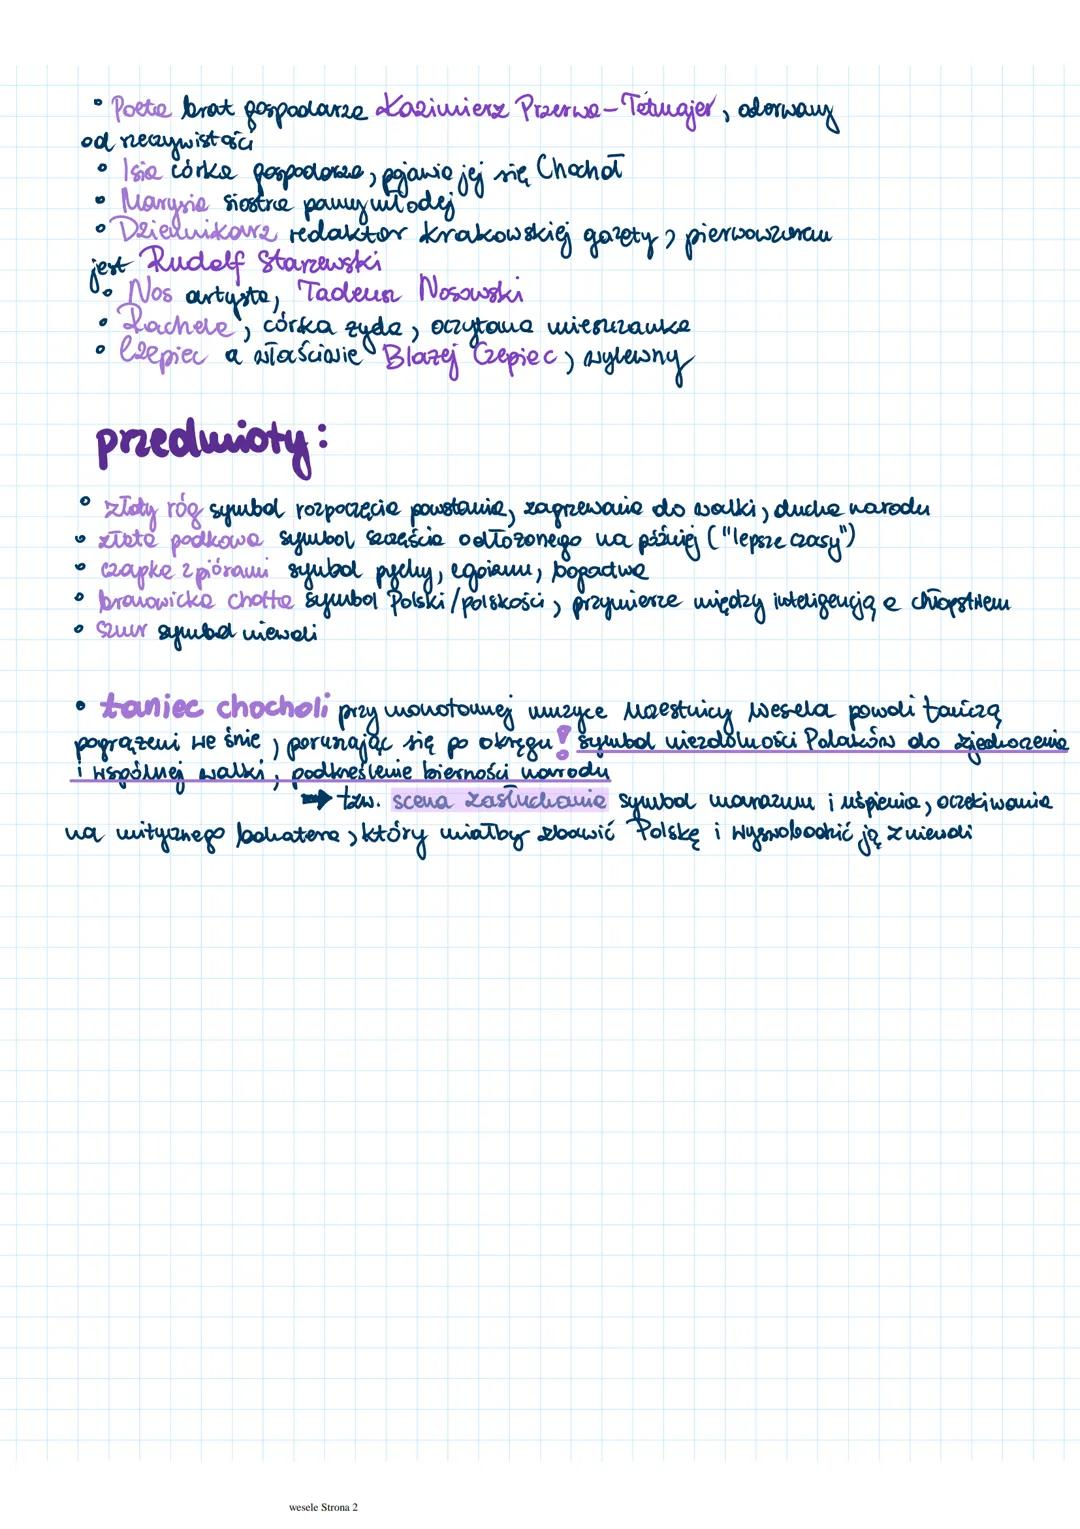 • Poeta brat gospodarza Kazimierz Przerwa-Tetmajer, oderwany
od rzeczywistości
• Isia córka gospodarza, pojawia jej się Chochoł
• Marysia siostra panny młodej
• Dziennikarz redaktor krakowskiej gazety, pierwowzorem
jest Rudolf Starzewski
• Nos artysta, Tadeusz Nosowski
• Rachela, córka żyda, oczytana mieszczanka
• Czepiec a właściwie Błażej Czepiec, wylewny
przedmioty:
• złoty róg symbol rozpoczęcia powstania, zagrzewania do walki, ducha narodu
• złota podkowa symbol szczęścia odłożonego na później ("lepsze czasy")
• czapka z piórami symbol pychy, egoizmu, bogactwa
• bronowicka chatta symbol Polski/polskości, przymierze między inteligencją a chłopstwem
• sznur symbol niewoli
• taniec chocholi przy monotonnej muzyce uczestnicy wesela powoli tańczą
pogrążeni we śnie, poruszając się po okręgu! symbol niezdolności Polaków do zjednoczenia
i wspólnej walki, podkreślenie bierności narodu
➡ tzw. scena zasłuchania symbol marazmu i uśpienia, oczekiwania
na mitycznego bohatera, który miałby zbawić Polskę i wyswobodzić ją z niewoli
wesele Strona 2